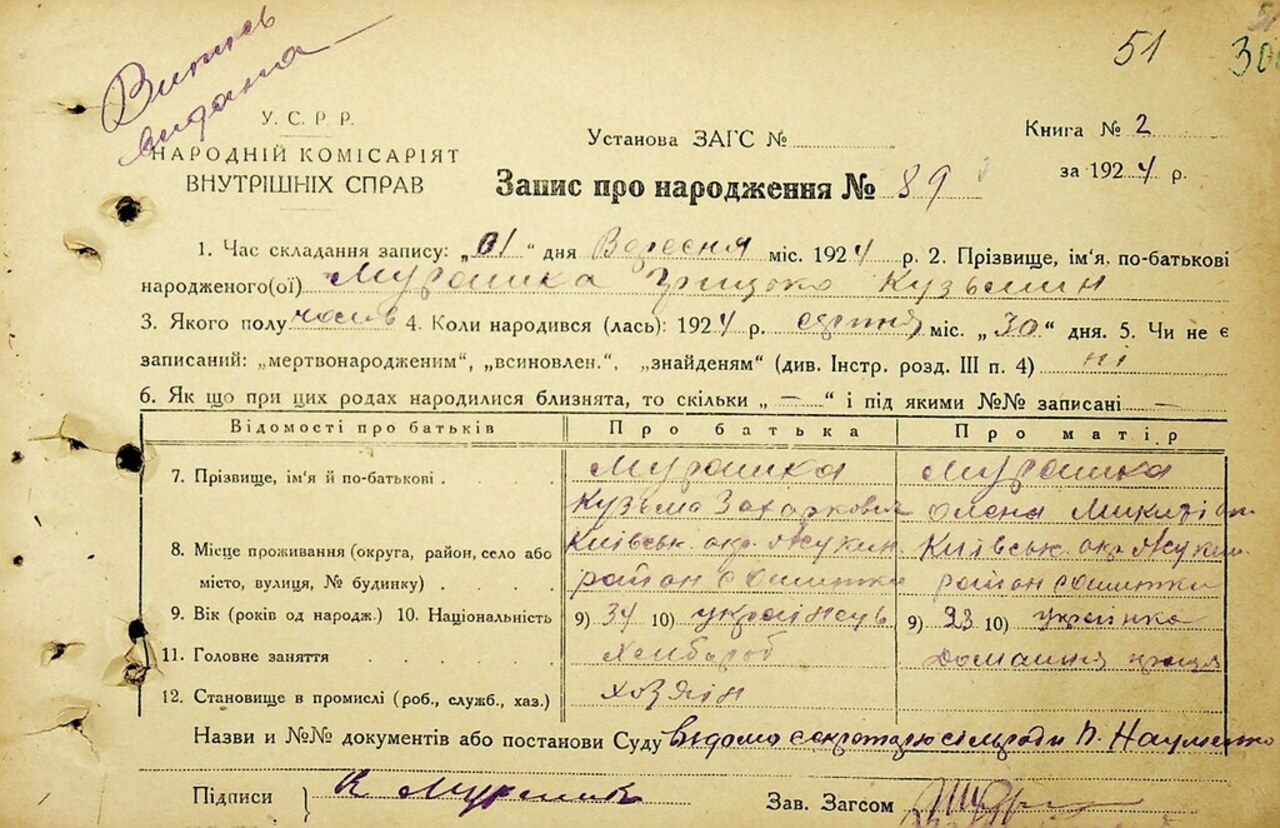 Випись
видана
51
30
У. С. Р. Р.
НАРОДНІЙ КОМІСАРІЯТ
ВНУТРІШНІХ СПРАВ
Установа ЗАГС №
Книга № 2
за 1924 р.
Запис про народження № 89
1. Час складання запису: „01“ дня Вересня міс. 1924 р. 2. Прізвище, ім'я, по-батькові
народженого(ої) Мурашка Грицько Кузьмин
3. Якого полу 4. Коли народився (лась): 1924 р. серпня міс. „30“ дня. 5. Чи не є
записаний: „мертвонародженим“, „всиновлен.“, „знайденям“ (див. Інстр. розд. III п. 4) ні
6. Як що при цих родах народилися близнята, то скільки „ — “ і під якими №№ записані —
Відомості про батьків Про батька Про матір
7. Прізвище, ім'я й по-батькові . . . . Мурашка Мурашка
Кузьма Захаркович Олена Микитівн
8. Місце проживання (округа, район, село або Київськ. окр. Жукин. Київськ. окр. Жукин.
місто, вулиця, № будинку) . . . . район с Ошитки район с Ошитки
9. Вік (років од народж.) 10. Національність 9) 34 10) українець 9) 23 10) українка
11. Головне заняття . . . . Хлібороб Домашня праця
12. Становище в промислі (роб., служб., хаз.) хозяїн
Назви и №№ документів або постанови Суду Відомо секретарю сільради П. Науменко
Підписи } К Мурашка Зав. Загсом